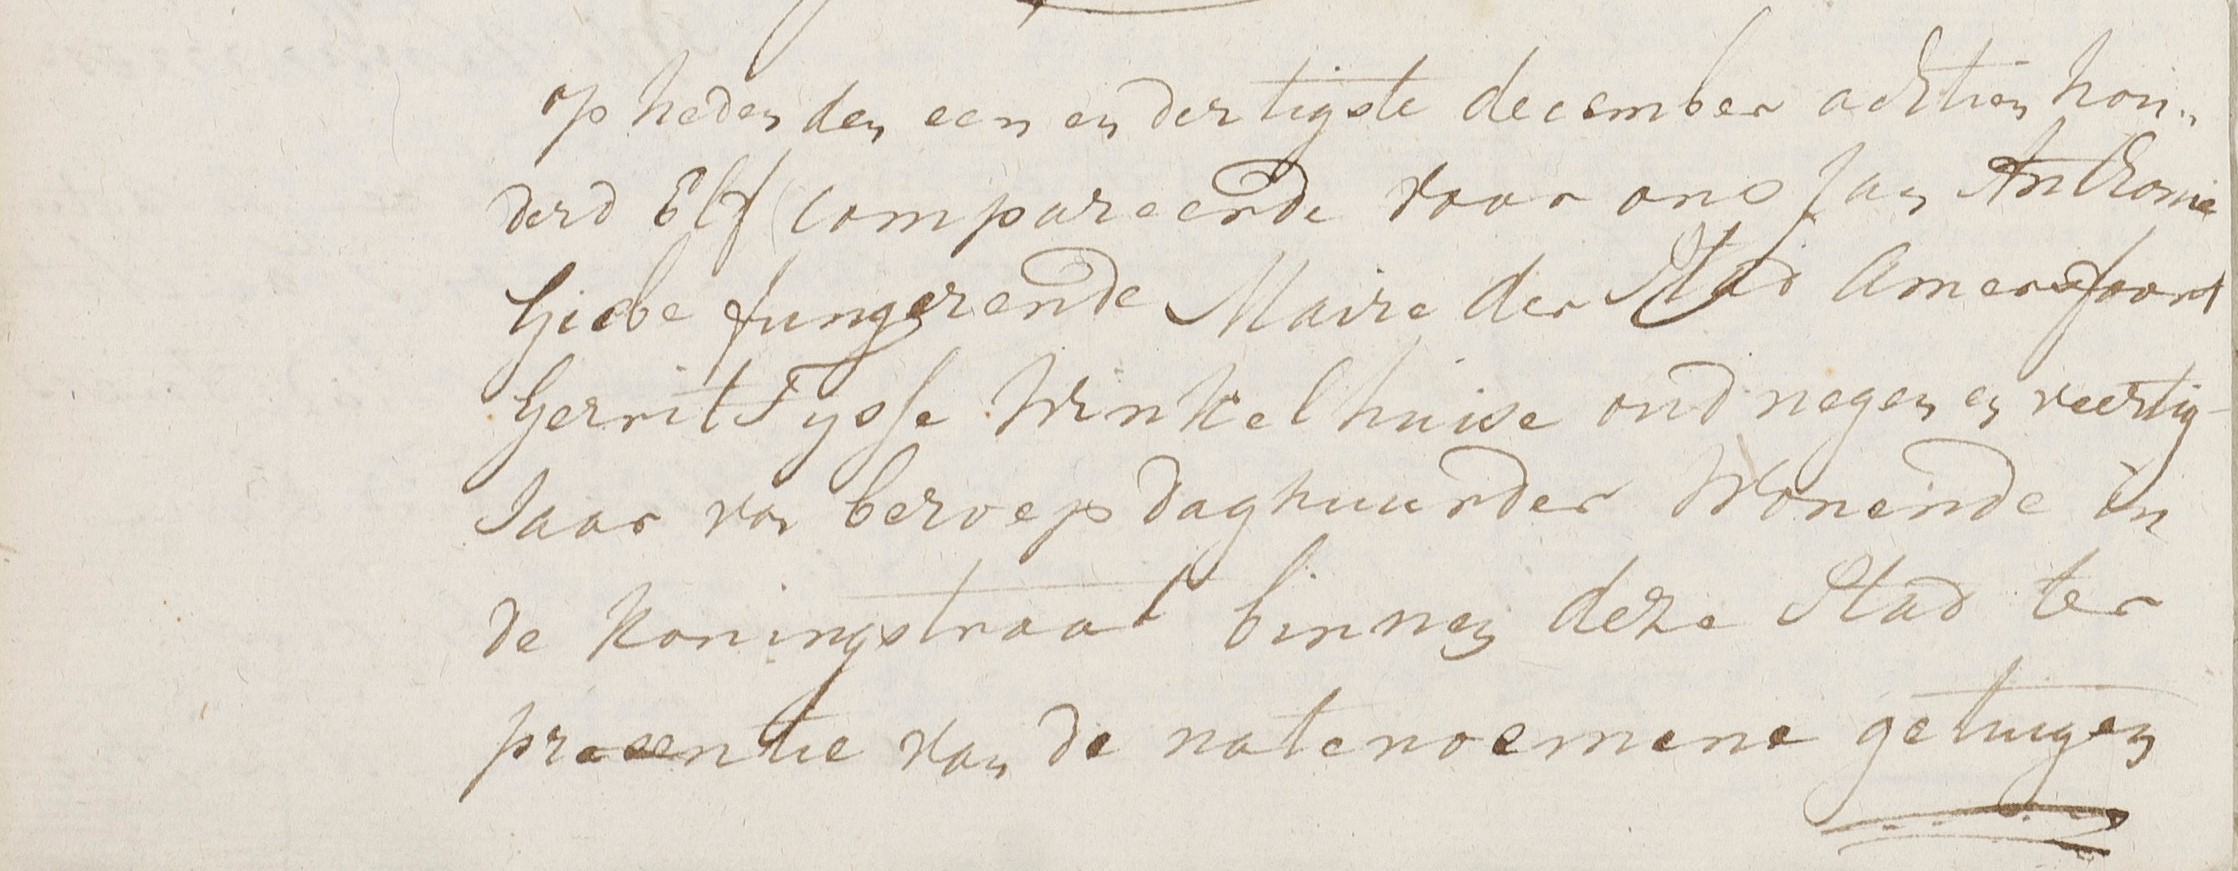 op heden den een en dertigste december achtien hon„
derd Elf compareerde voor ons Jan Anthonie
Giebe fungerende Maire der Stad Amersfoort
Gerrit Tysse Winkelhuise oud negen en veertig
Jaar van beroep daghuurder Wonende in
de Koningstraat binnen deze Stad ter
presentie van de natenoemene getuigen